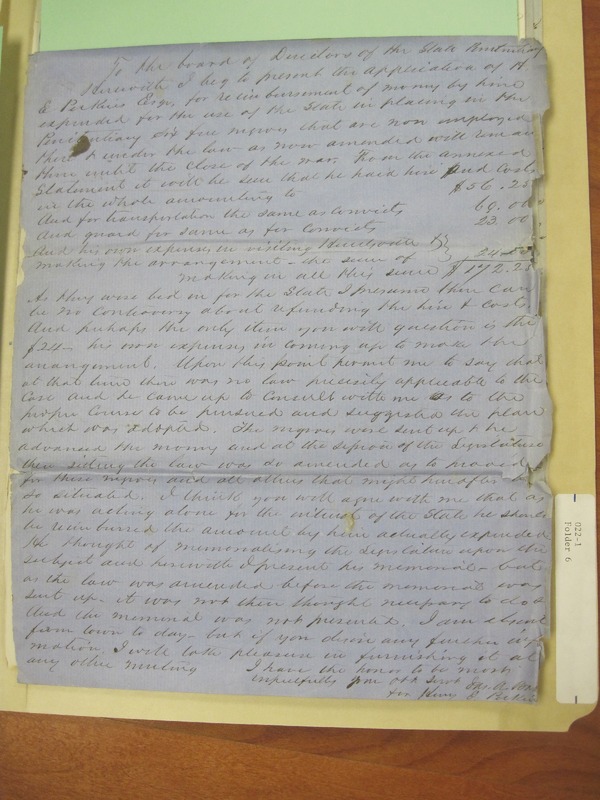 To the board of Directors of the State Penitentiary
Herewith I beg to present the application of H
E Perkins Esqr, for reimbursement of money by him
expended for the use of the State in placing in the
Penitentiary six free negros that are now employed
there & under the law as now amended will remain
there until the close of the war. From the annexed
Statement it will be seen that he paid hire and costs
in the whole amounting to $56.25
And for transportation the same as convicts 69.00
And guard for same as for Convicts 23.00
And his own expenses in visiting Huntsville &
making the arrangement - the sum of 24.00
making in all this sum $172.25
As they were bid in for the State I presume there can
be no controversy about refunding the hire & Costs.
And perhaps the only item you will question is the
$24- his own expenses in coming up to make the
arrangement. Upon this point permit me to say that
at that time there was no law precisely applicable to the
case and he came up to consult with me as to the
proper course to be pursued and suggested the plan
which was adopted. The negros were sent up & he
advanced the money and at the session of the Legislature
then sitting the law was so amended as to provide
for these negros and all others that might hereafter
so situated. I think you will agree with me that as
he was acting alone for the interest of the State he should
be reimbursed the amount by him actually expended
He thought of memorialising the Legislature upon the
subject and herewith I present his memorial - but
as the law was amended before the memorial was
sent up - it was not then thought necessary to do so
And the memorial was not presented. I am absent
from town to day - but if you desire any further infor
mation, I will take pleasure in furnishing it at
any other meeting I have the honor to be most
respectfully your obt Servt
for Henry E Perkins